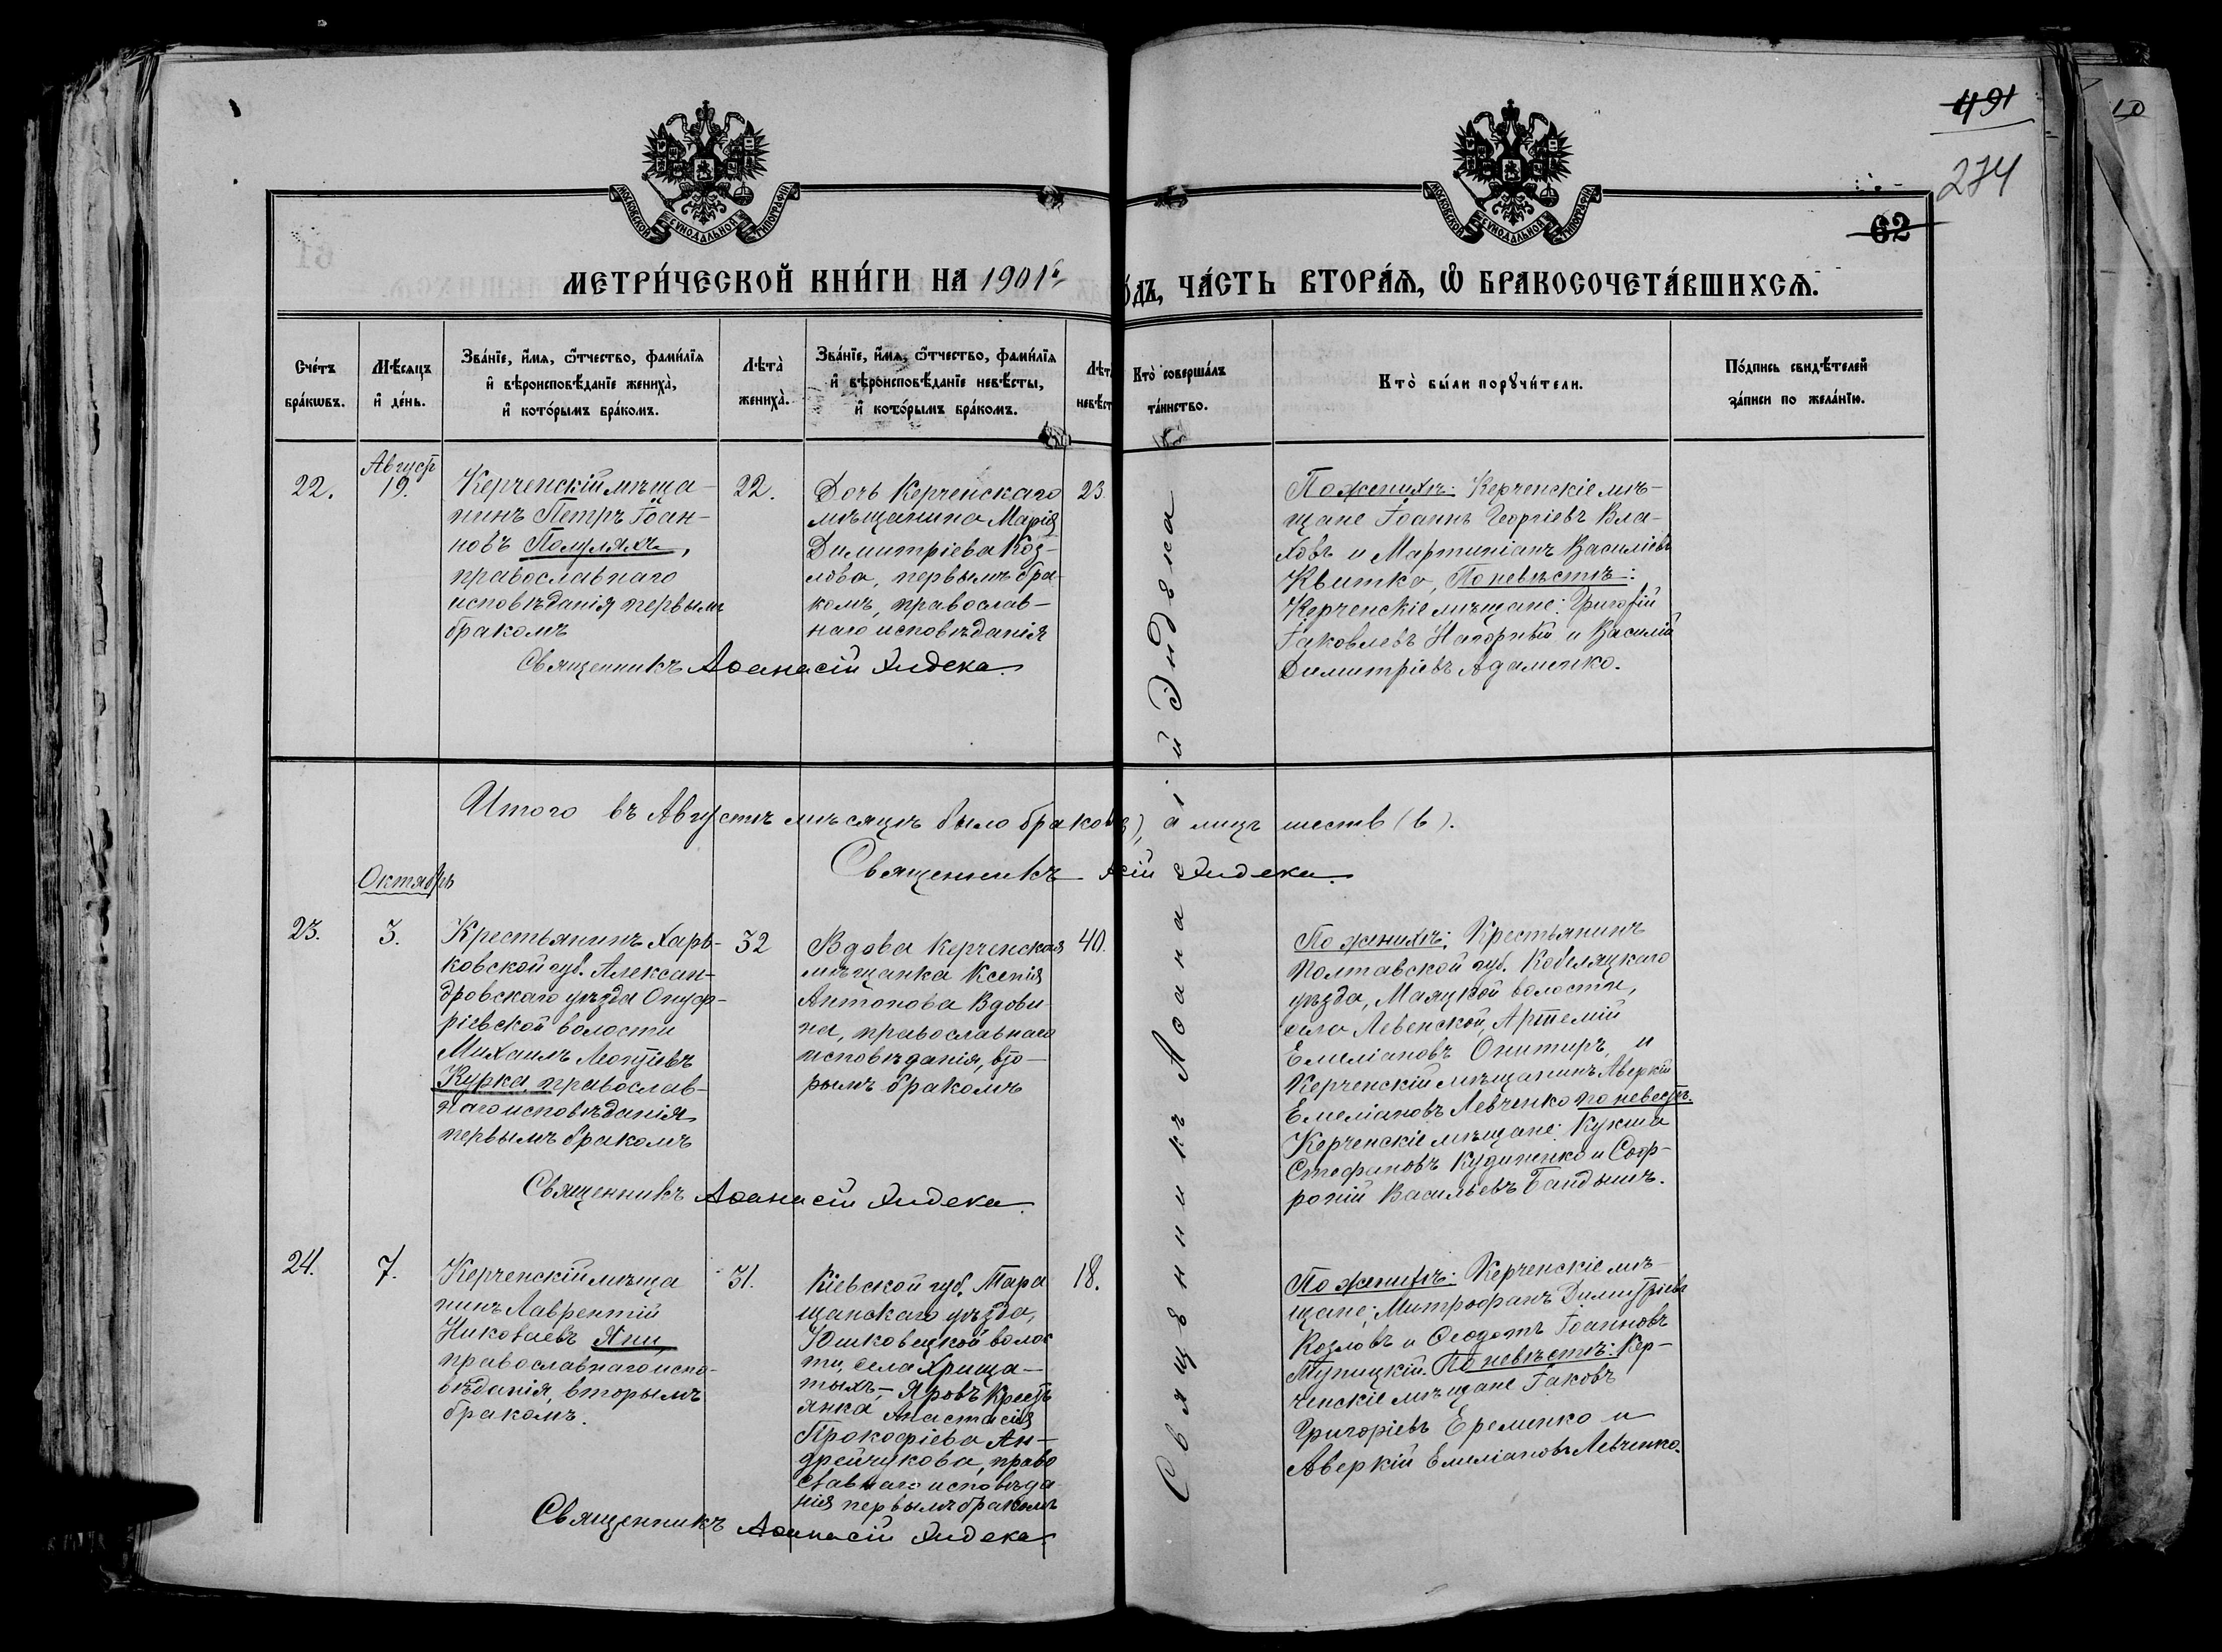 491
274
62
10
МОСКОВСКОЙ СѴНОДАЛЬНОЙ ТИПОГРАФІИ
МОСКОВСКОЙ СѴНОДАЛЬНОЙ ТИПОГРАФІИ
МЕТРИ́ЧЕСКОЙ КНИ́ГИ НА 1901й
О́ДЪ, ЧА́СТЬ ВТОРА́Ѧ, Ѽ БРАКОСОЧЕТА́ВШИХСѦ.
Сче́тъ
бра́кѡвъ.
Мѣ́сяцъ
и҆ де́нь.
Зва́нїе, и҆́мѧ, ѻ҆́тчество, фамилїѧ
и҆ вѣроисповѣ́данїе жениха̀,
и҆ кото́рымъ бра́комъ.
Лѣта̀
жениха̀.
Зва́нїе, и҆́мѧ, ѻ҆́тчество, фамилїѧ
и҆ вѣроисповѣ́данїе невѣ́сты,
и҆ кото́рымъ бра́комъ.
Лѣта
невѣст
Кто̀ соверша́лъ
та́инство.
Кто̀ бы́ли порꙋчи́тели.
По́дпись свидѣ́телей
за́писи по жела́нїю.
22.
Август
19.
Керченскій мѣща-
нинъ Петръ Іоан-
новъ Полуляхъ,
православнаго
исповѣданія первымъ
бракомъ
22.
Дочь Керченскаго
мѣщанина Марія
Димитріева Коз-
лова, первымъ бра-
комъ, православ-
наго исповѣданія
23.
Священникъ Аѳанасій Эидека.
По женихѣ: Керченскіе мѣ-
щане Іоаннъ Георгіевъ Вла-
ховъ и Мартиніанъ Василіевъ
Квитко, По невѣстѣ:
Керченскіе мѣщане: Григорій
Іаковлевъ Нагорный и Василій
Димитріевъ Адаменко.
Священникъ Аѳанасій Эидека
Итого въ Августѣ мѣсяцѣ было браковъ 3), а лицъ шесть (6).
Священникъ сій Эидека.
Октябрь
23.
3.
Крестьянинъ Харь-
ковской губ. Алексан-
дровскаго уѣзда Онуф-
ріевской волости
Михаилъ Леонтіевъ
Курка, православ-
наго исповѣданія
первымъ бракомъ
32
Вдова Керченская
мѣщанка Ксенія
Антонова Вдови-
на, православнаго
исповѣданія, вто-
рымъ бракомъ
40.
Священникъ Аѳанасій Эидека.
По женихѣ: Крестьянинъ
Полтавской губ. Кобеляцкаго
уѣзда, Маяцкой волости,
села Левенской, Артемій
Емеліановъ Онитиръ, и
Керченскій мѣщанинъ Аверкій
Емеліановъ Левченко по невестѣ.
Керченскіе мѣщане: Кукша
Стефановъ Кудиненко и Соф-
роній Васильевъ Бандышъ.
24.
7.
Керченскій мѣща
нинъ Лаврентій
Николаевъ Яни,
православнаго испо-
вѣданія, вторымъ
бракомъ.
31.
Кіевской губ. Тара
щанскаго уѣзда,
Юшковецкой волос
ти, села Хрища-
тыхъ-Яровъ Крестъ
янка Анастасія
Прокофіева Ан-
дрейчукова, право
славнаго исповѣда
нія первымъ бракомъ
18.
Священникъ Аѳанасій Эидека.
По женихѣ: Керченскіе мѣ-
щане: Митрофанъ Димитріевъ
Козловъ и Ѳеодотъ Іоанновъ
Тупицкій. По невѣстѣ: Кер-
ченскіе мѣщане Іаковъ
Григоріевъ Еременко и
Аверкій Емеліановъ Левченко.